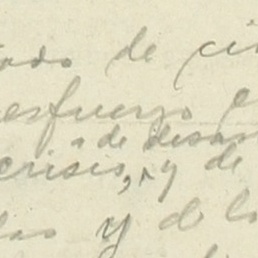 ado de ci
esfuerzo e
a de desas
crisis, y de
las y de lo